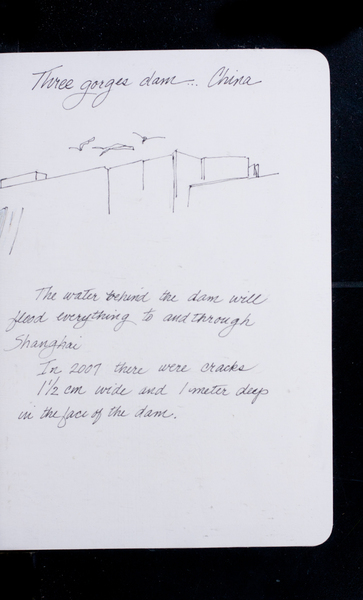 Three gorges dam... China
The water behind the dam will
flood everything to and through
Shanghai
In 2007 there were cracks
1 1/2 cm wide and 1 meter deep
in the face of the dam.